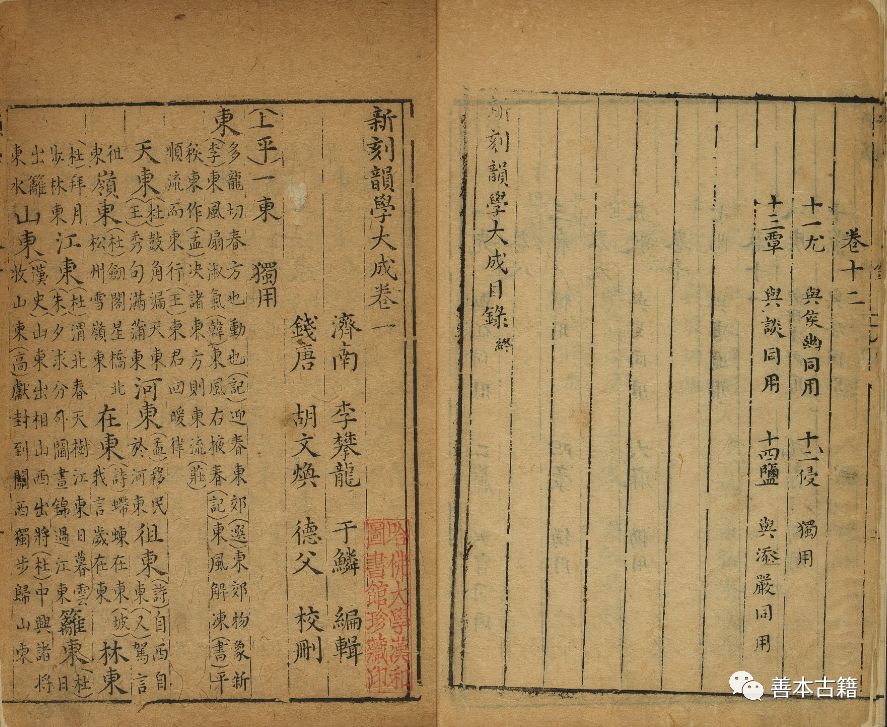 卷十二
十一尤 與侯幽同用 十二侵 獨用
十三覃 與談同用 十四鹽 與添嚴同用
新刻韻學大成目錄終
新刻韻學大成卷一
濟南 李攀龍 于鱗 編輯
錢唐 胡文煥 德父 校刪
上平一東 獨用
東 多龍切春方也動也(記)迎春東郊(選)東郊物象新
(李)東風扇淑氣(韓)東風右掖春(記)東風解凍(書)平
秩東作(孟)决諸東方則東流(莊)
順流而東行(王)東君回暖律
天東 (杜)鼓角漏天東(王)秀句滿蒲東 河東 (孟)移民於河東 徂東 (詩)自西自(又)駕言
徂東 嶺東 (杜)劔閣星橋北松州雪嶺東 在東 (詩)蝃蝀在東(坡)我言歲在東 林東
(杜)拜月步林東 江東 (杜)渭北春天樹江東日暮雲朱夕求分外閫晝錦過江東 籬東 (杜)日
出籬東水 山東 (漢史)山東出相山西出將(杜)中興諸將收山東(高)獻封到關西獨步歸山東
哈佛大學漢和
圖書館珍藏印
善本古籍